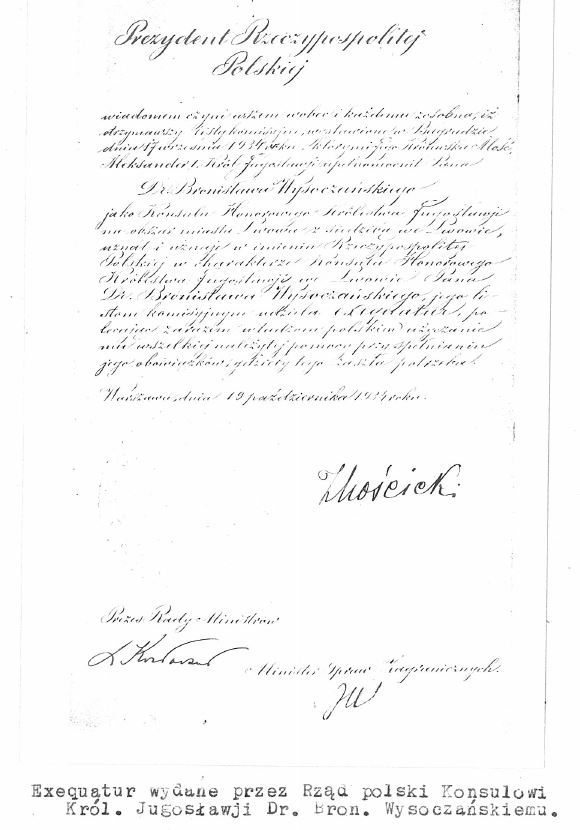 Prezydent Rzeczypospolitej
Polskiej
wiadomem czyni wszem wobec i każdemu zosobna, iż
otrzymawszy listy komisyjne, wystawione w Biogradzie
dnia 17 września 1934 roku, któremi Jego Królewska Mość,
Aleksander I, Król Jugosławji upełnomocnił Pana
Dr. Bronisława Wysoczańskiego
jako Konsula Honorowego Królestwa Jugosławji
na obszar miasta Lwowa z siedzibą we Lwowie,
uznał i uznaje w imieniu Rzeczypospolitej
Polskiej w charakterze Konsula Honorowego
Królestwa Jugosławji we Lwowie Pana
Dr. Bronisława Wysoczańskiego, jego li-
stom komisyjnym udziela exequatur, po-
lecając zarazem władzom polskim użyczanie
mu wszelkiej należytej pomocy przy spełnianiu
jego obowiązków, gdzieby tego zaszła potrzeba.
Warszawa, dnia 19 października 1934 roku.
I Mościcki
Prezes Rady Ministrów
L Kozłowski
Minister Spraw Zagranicznych
Exequatur wydane przez Rząd polski Konsulowi
Król. Jugosławji Dr. Bron. Wysoczańskiemu.